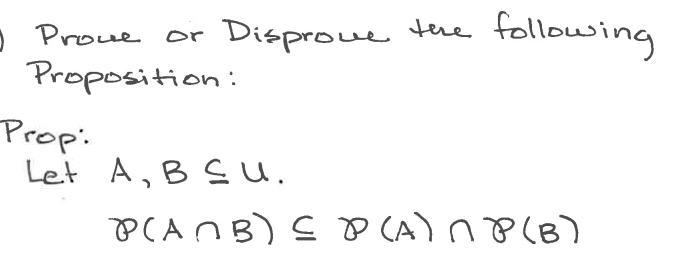 ) Prove or Disprove the following
Proposition:
Prop:
Let A, B ⊆ U.
℘(A ∩ B) ⊆ ℘(A) ∩ ℘(B)